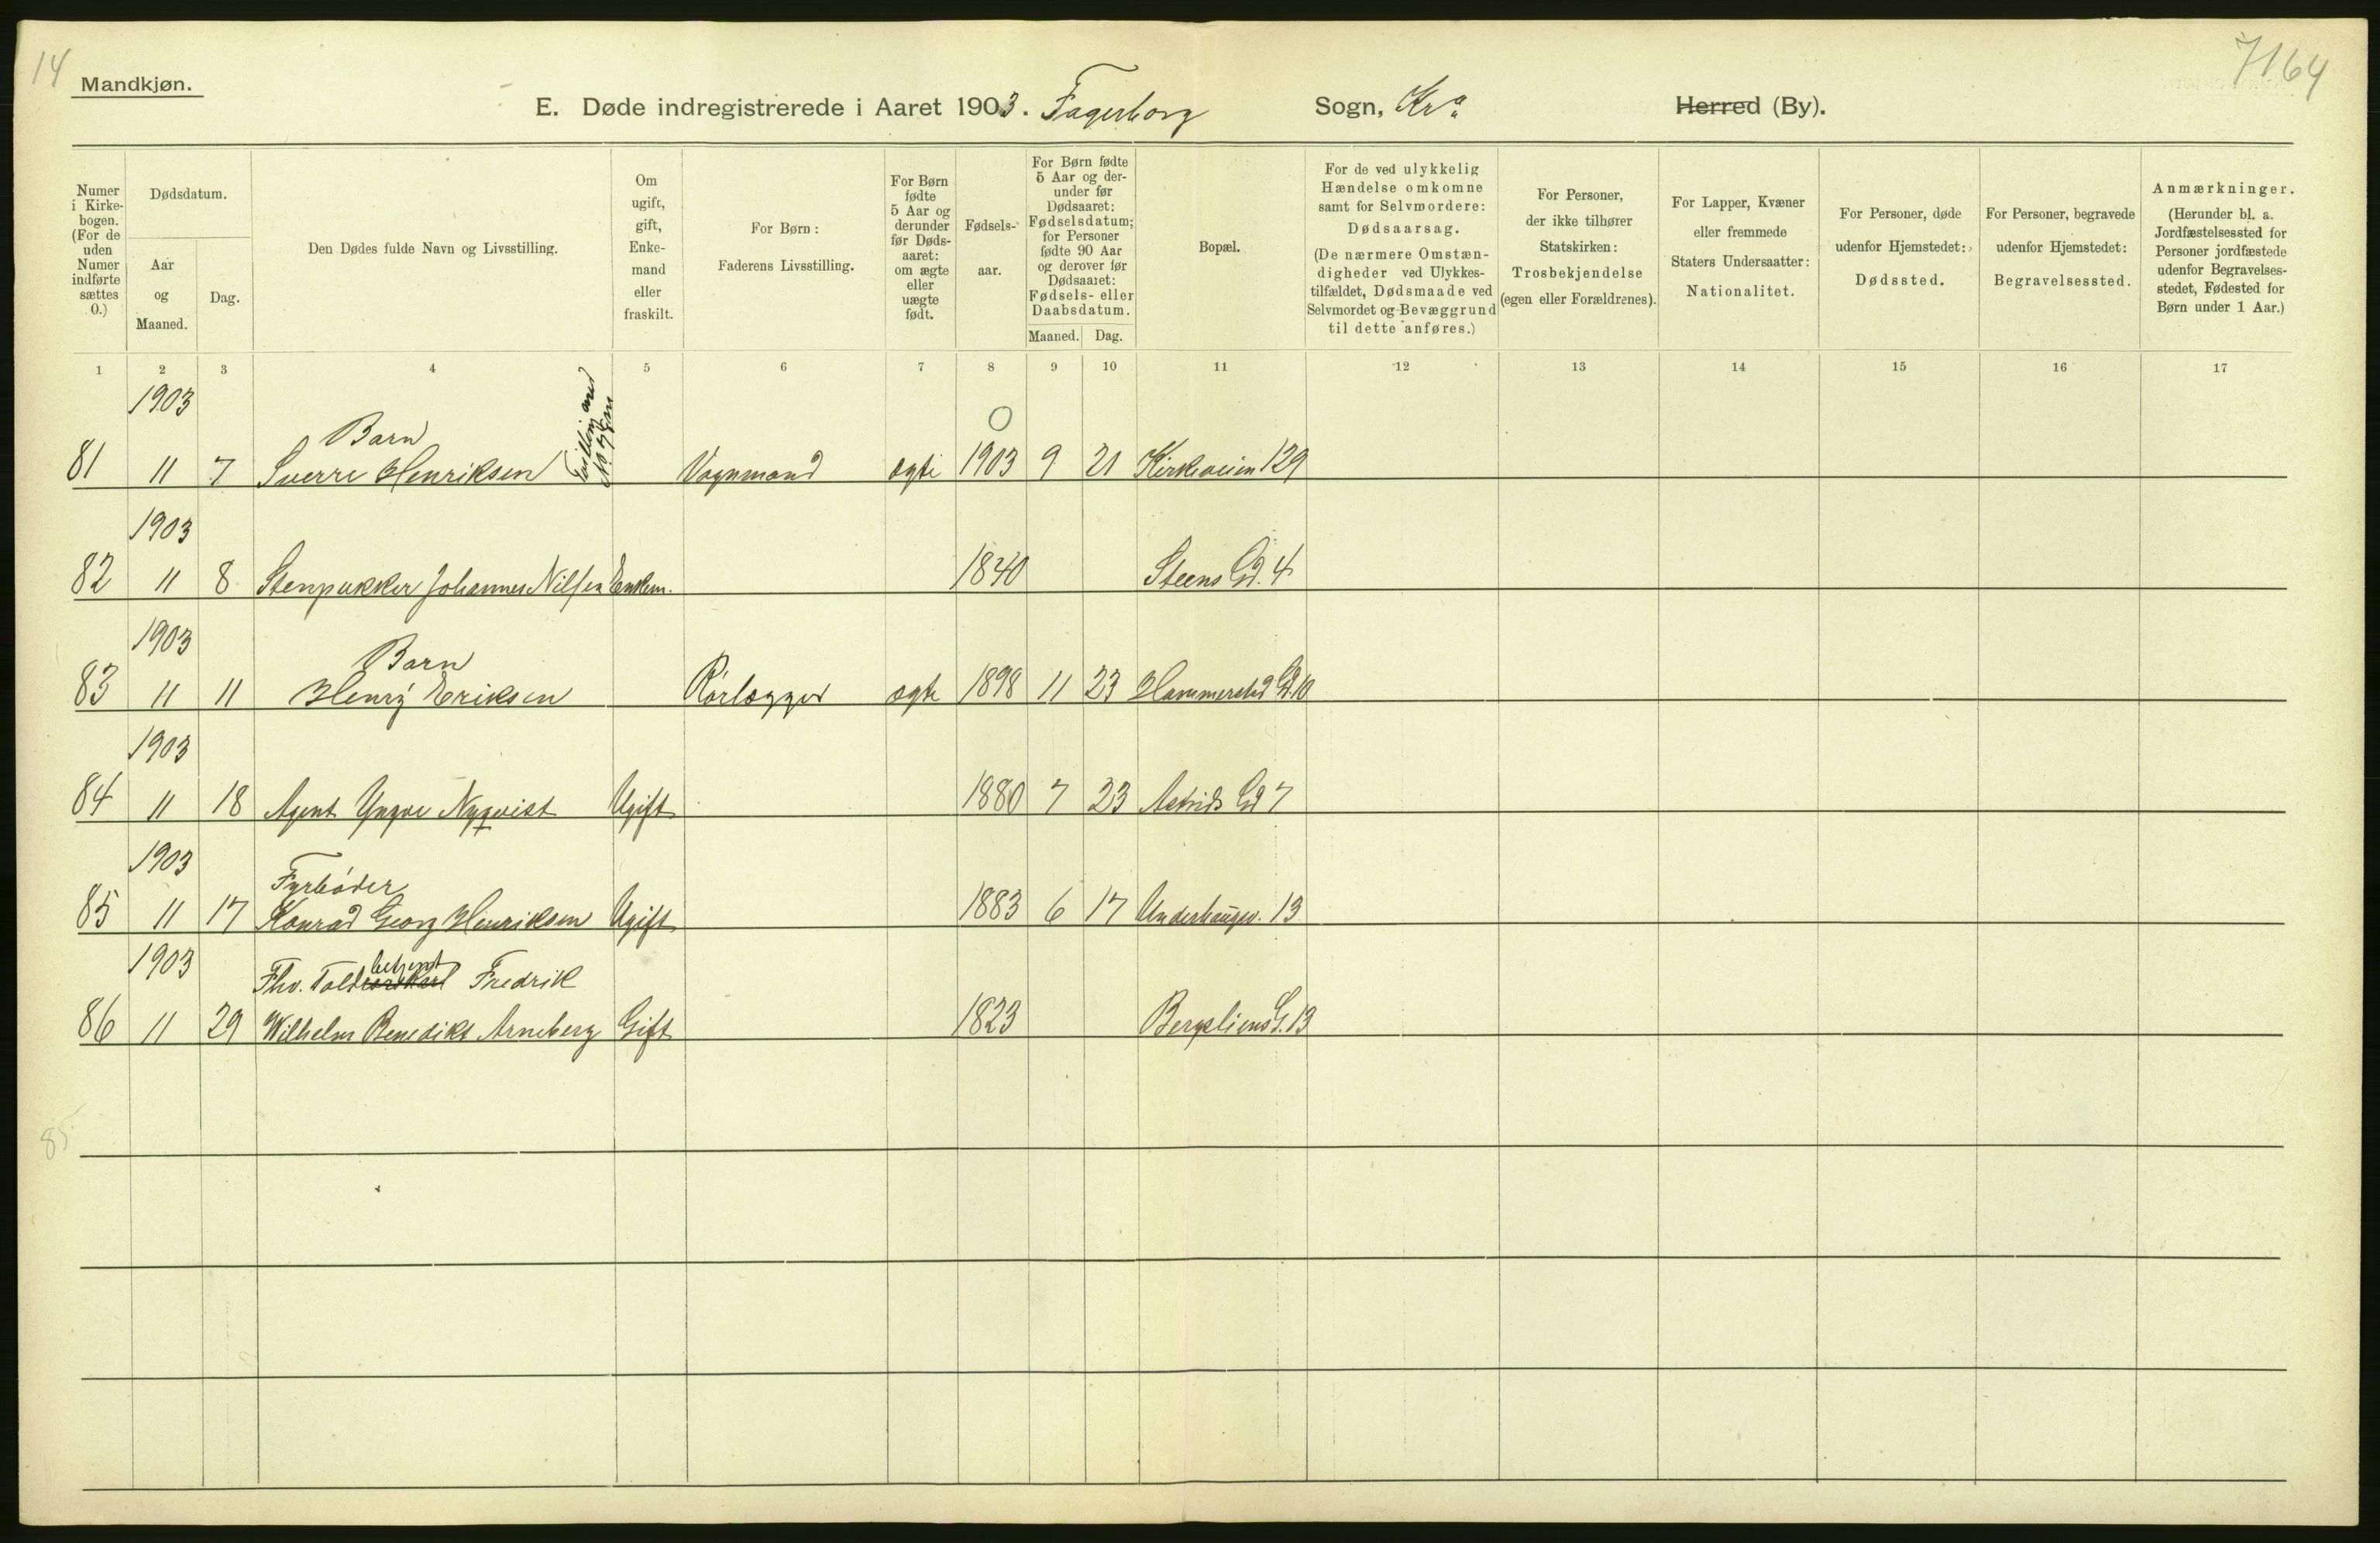 14
7164
Mandkjøn.
E. Døde indregistrerede i Aaret 1903. Fagerborg Sogn, Kra Herred (By).
Numer i Kirkebogen. (For de uden Numer indførte sættes 0.)
Dødsdatum.
Aar og Maaned.
Dag.
Den Dødes fulde Navn og Livsstilling.
Om ugift, gift, Enkemand eller fraskilt.
For Børn: Faderens Livsstilling.
For Børn fødte 5 Aar og derunder før Dødsaaret: om ægte eller uægte født.
Fødselsaar.
For Børn fødte 5 Aar og derunder før Dødsaaret: Fødselsdatum; for Personer fødte 90 Aar og derover før Dødsaaret: Fødsels- eller Daabsdatum.
Maaned. Dag.
Bopæl.
For de ved ulykkelig Hændelse omkomne samt for Selvmordere: Dødsaarsag. (De nærmere Omstændigheder ved Ulykkestilfældet, Dødsmaade ved Selvmordet og Bevæggrund til dette anføres.)
For Personer, der ikke tilhører Statskirken: Trosbekjendelse (egen eller Forældrenes).
For Lapper, Kvæner eller fremmede Staters Undersaatter: Nationalitet.
For Personer, døde udenfor Hjemstedet: Dødssted.
For Personer, begravede udenfor Hjemstedet: Begravelsessted.
Anmærkninger. (Herunder bl. a. Jordfæstelsessted for Personer jordfæstede udenfor Begravelsesstedet, Fødested for Børn under 1 Aar.)
1 2 3 4 5 6 7 8 9 10 11 12 13 14 15 16 17
1903
Barn
Tvilling med
0
81 11 7 Sverre Henriksen Vognmand ægte 1903 9 21 Kirkeveien 129
1903
82 11 8 Stenpukker Johannes Nilsen Enkem. 1840 Steens Gd. 4
1903
Barn
83 11 11 Henry Eriksen Rørlægger ægte 1898 11 23 Hammerstad Gd. 10
1903
84 11 18 Agent Yngve Nyqvist Ugift 1880 7 23 Astrids Gd 7
1903
Fyrbøder
85 11 17 Konrad Georg Henriksen Ugift 1883 6 17 Underhaugsv. 13
1903
betjent
Fhv. Told Fredrik
86 11 29 Wilhelm Benedikt Arneberg Gift 1823 Bergsliens G. 13
85